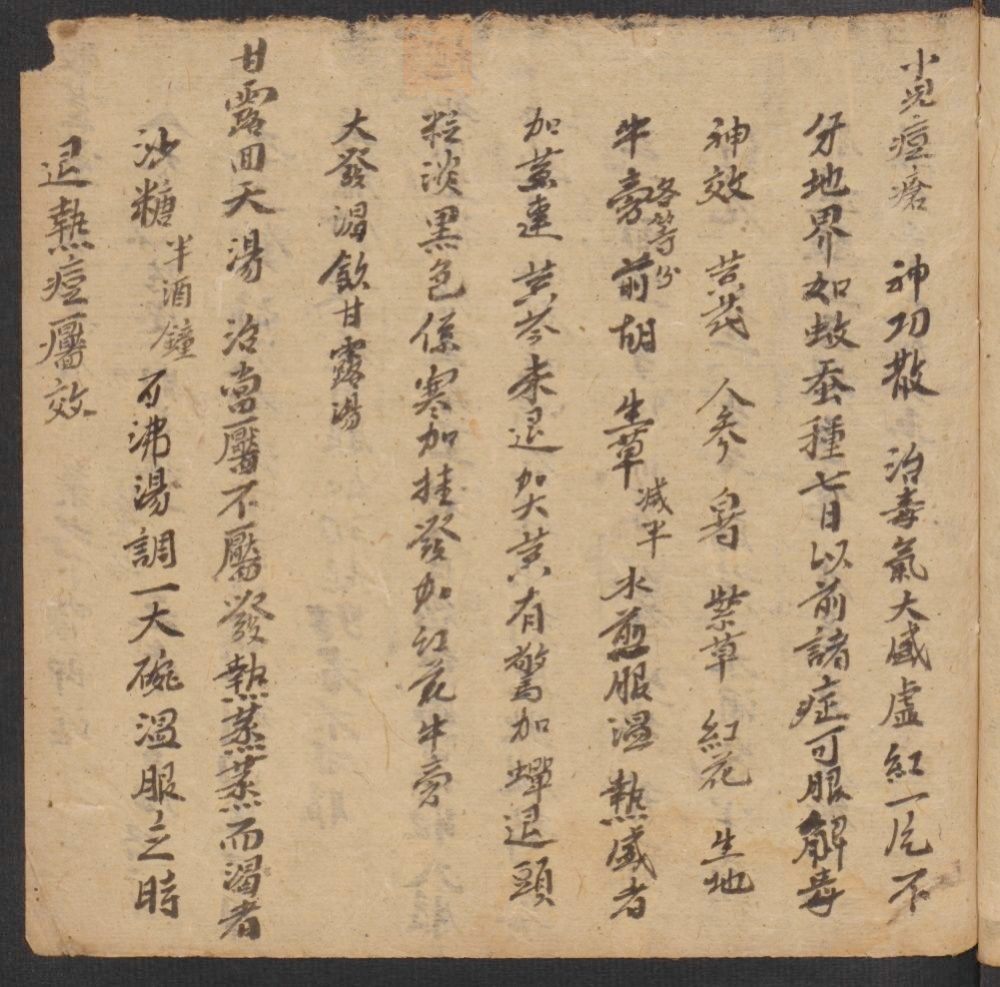 小児痘瘡 神功散 治毒氣大盛虛紅一片不
分地界如蚊蚤種七日以前諸症可服解毒
神效 黃芪 人參 白芍 紫草 紅花 生地
牛旁各等分 前胡 生草減半 水煎服溫熱盛者
加黃連黃芩未退加大黃有驚加蟬退頭
粒淡黑色係寒加桂發加紅花牛旁
大發渴飲甘露湯
甘露回天湯 治當靨不靨發熱蒸蒸而渴者
沙糖半酒鐘 百沸湯調一大碗溫服之時
退熱痘靨效